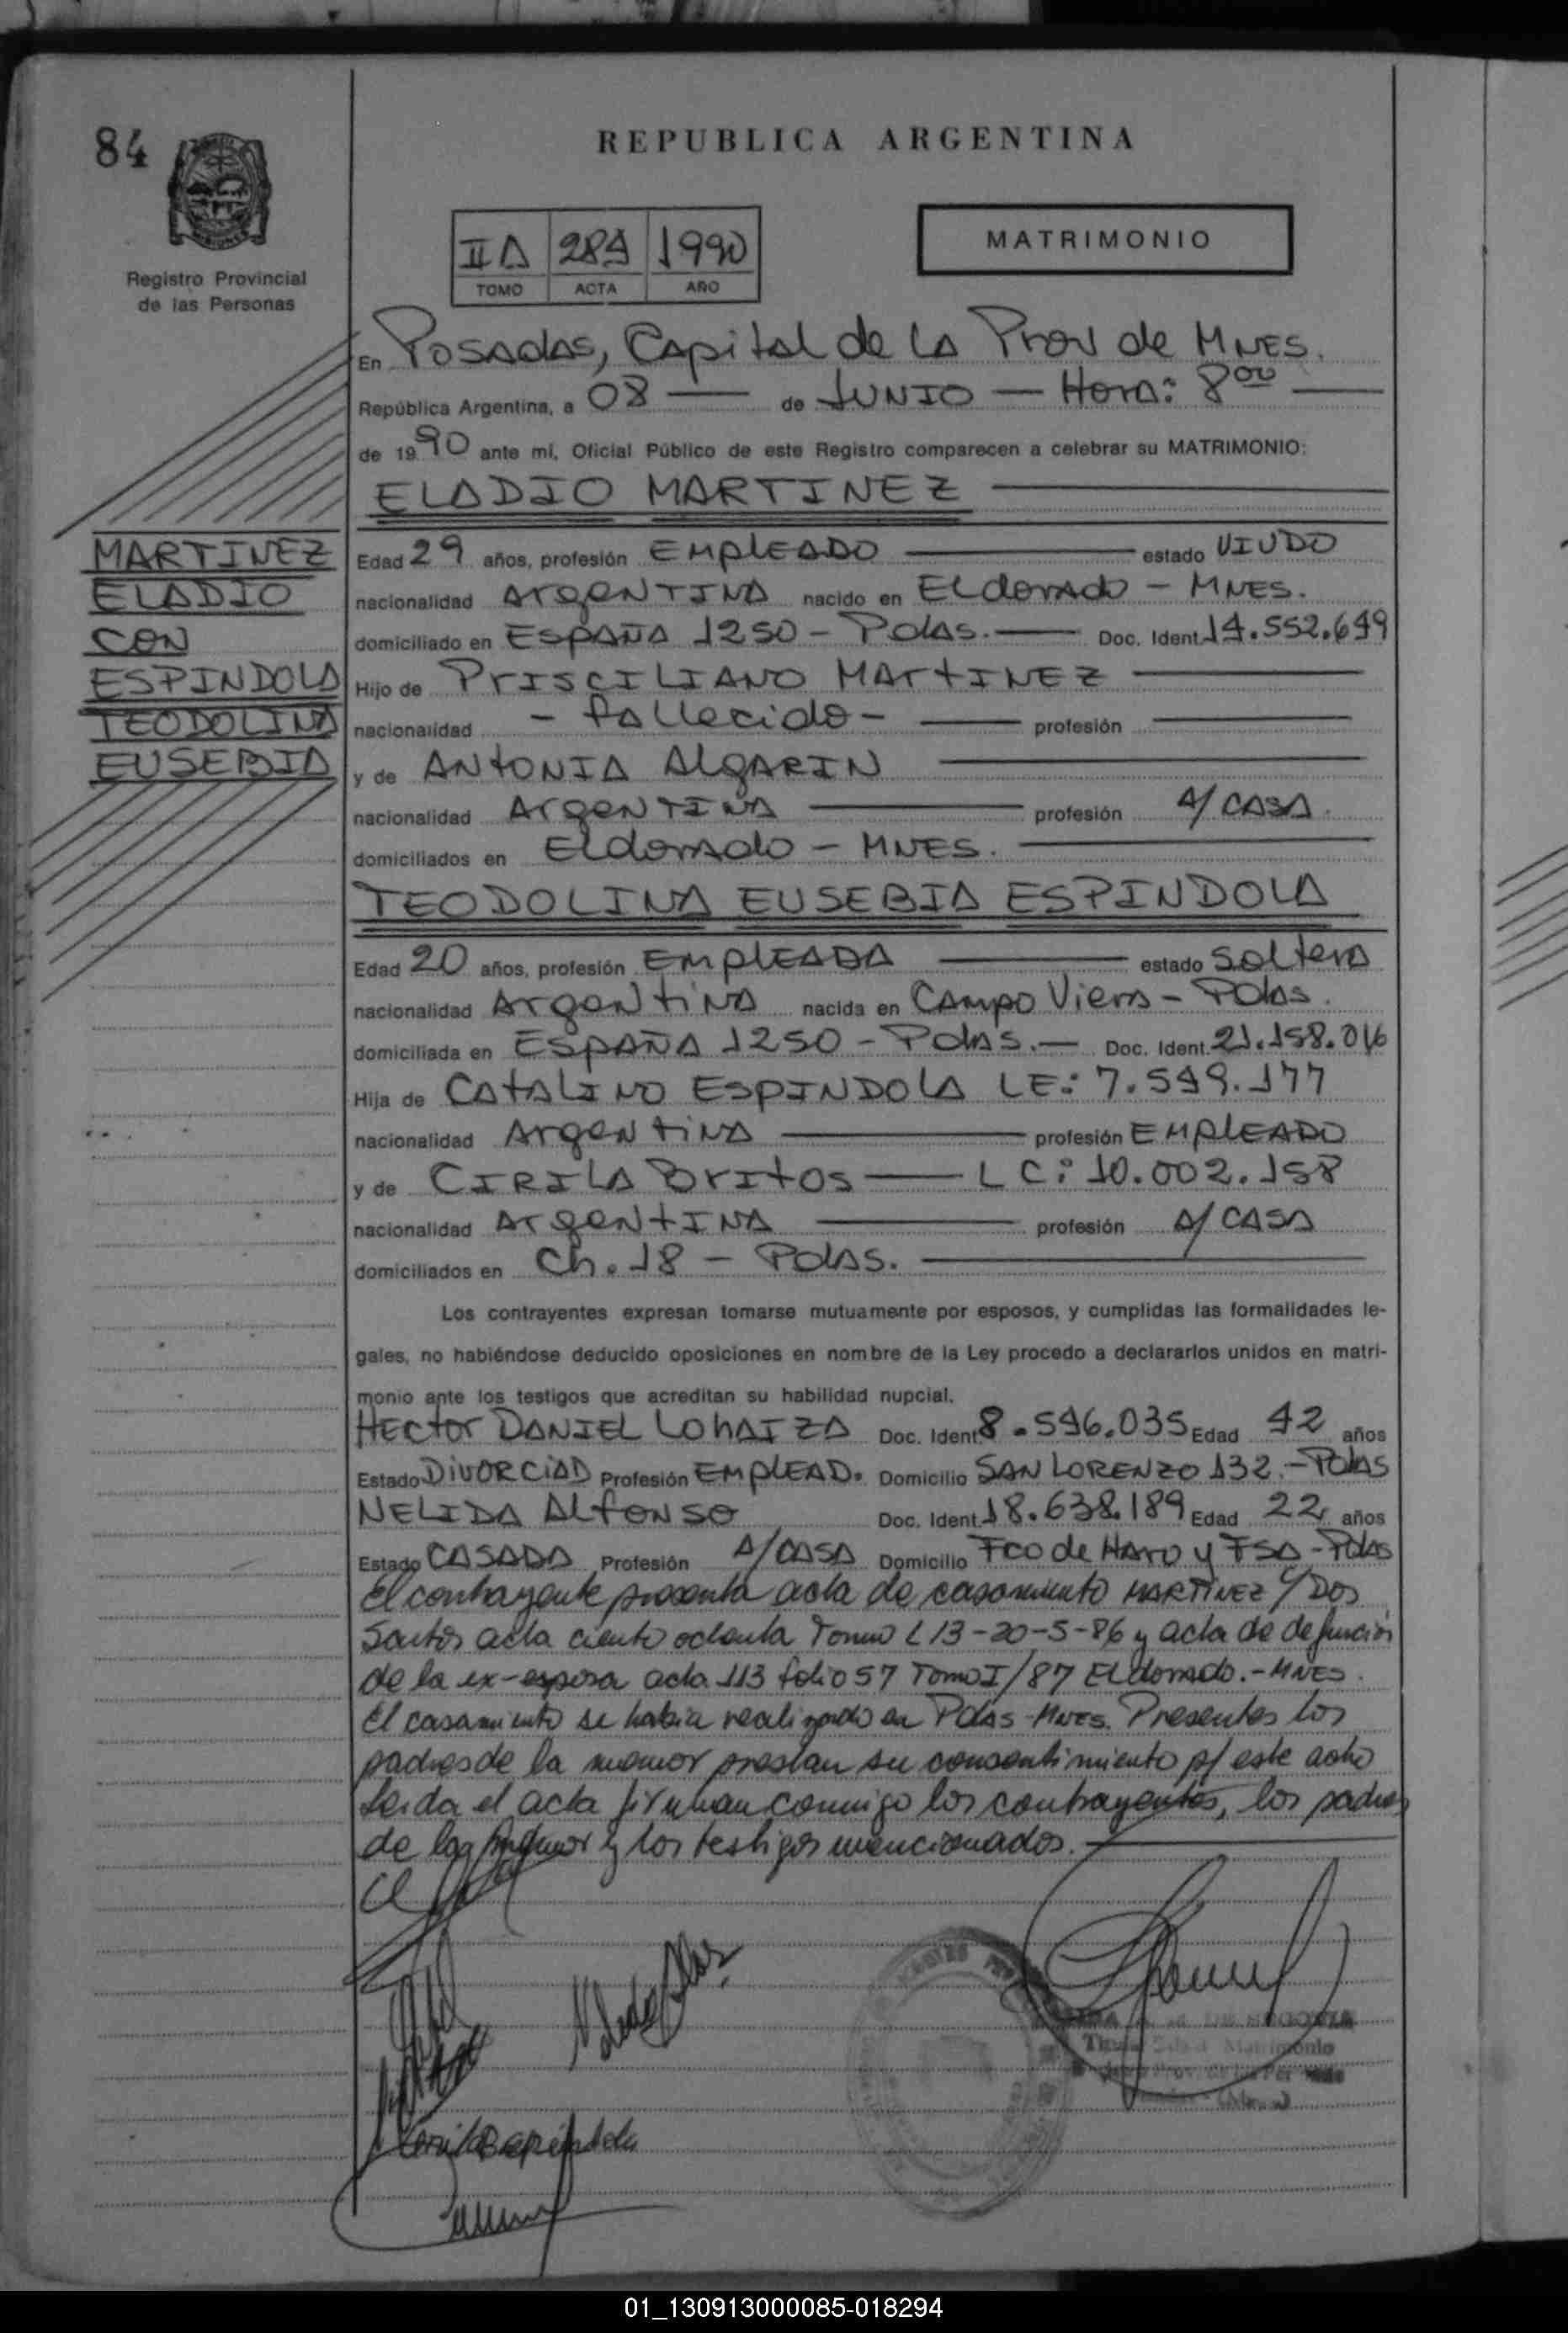 84
REPUBLICA ARGENTINA
Registro Provincial
de las Personas
II A 284 1990
TOMO ACTA AÑO
MATRIMONIO
En Posadas, Capital de la Prov de Mnes.
República Argentina, a 08 — de JUNIO — Hora: 8 00 —
de 1990 ante mí, Oficial Público de este Registro comparecen a celebrar su MATRIMONIO:
ELADIO MARTINEZ
MARTINEZ
ELADIO
CON
ESPINDOLA
TEODOLINA
EUSEBIA
Edad 29 años, profesión EMPLEADO estado VIUDO
nacionalidad ARGENTINA nacido en Eldorado - MNES.
domiciliado en ESPAÑA 1250 - Pdas. — Doc. Ident. 14.552.649
Hijo de PRISCILIANO MARTINEZ
nacionalidad - fallecido - profesión
y de ANTONIA ALGARIN
nacionalidad ARGENTINA profesión A/ CASA.
domiciliados en Eldorado - MNES.
TEODOLINA EUSEBIA ESPINDOLA
Edad 20 años, profesión EMPLEADA estado soltera
nacionalidad Argentina nacida en Campo Viera - Pdas.
domiciliada en ESPAÑA 1250 - Pdas. — Doc. Ident. 21.158.016
Hija de CATALINO ESPINDOLA LE: 7.549.177
nacionalidad Argentina profesión EMPLEADO
y de CIRILA BRITOS — LC: 10.002.158
nacionalidad ARGENTINA profesión A/ CASA
domiciliados en Ch. 18 - Pdas.
Los contrayentes expresan tomarse mutuamente por esposos, y cumplidas las formalidades le-
gales, no habiéndose deducido oposiciones en nombre de la Ley procedo a declararlos unidos en matri-
monio ante los testigos que acreditan su habilidad nupcial.
HECTOR DANIEL LOHAIZA Doc. Ident. 8.546.035 Edad 42 años
Estado DIVORCIAD Profesión EMPLEAD. Domicilio SAN LORENZO 132.- Pdas
NELIDA ALFONSO Doc. Ident. 18.638.189 Edad 22 años
Estado CASADA Profesión A/CASA Domicilio Fco de Haro y FSA - Pdas
El contrayente presenta acta de casamiento MARTINEZ c/ Dos
Santos acta ciento ochenta Tomo L 13-20-5-86 y acta de defunción
de la ex-esposa acta 113 folio 57 Tomo I/87 Eldorado.- MNES.
El casamiento se había realizado en Pdas - Mnes. Presentes los
padres de la menor prestan su consentimiento p/ este acto
leida el acta firman conmigo los contrayentes, los padres
de la menor y los testigos mencionados.
DE SEGOVIA
Matrimonio
01_130913000085-018294